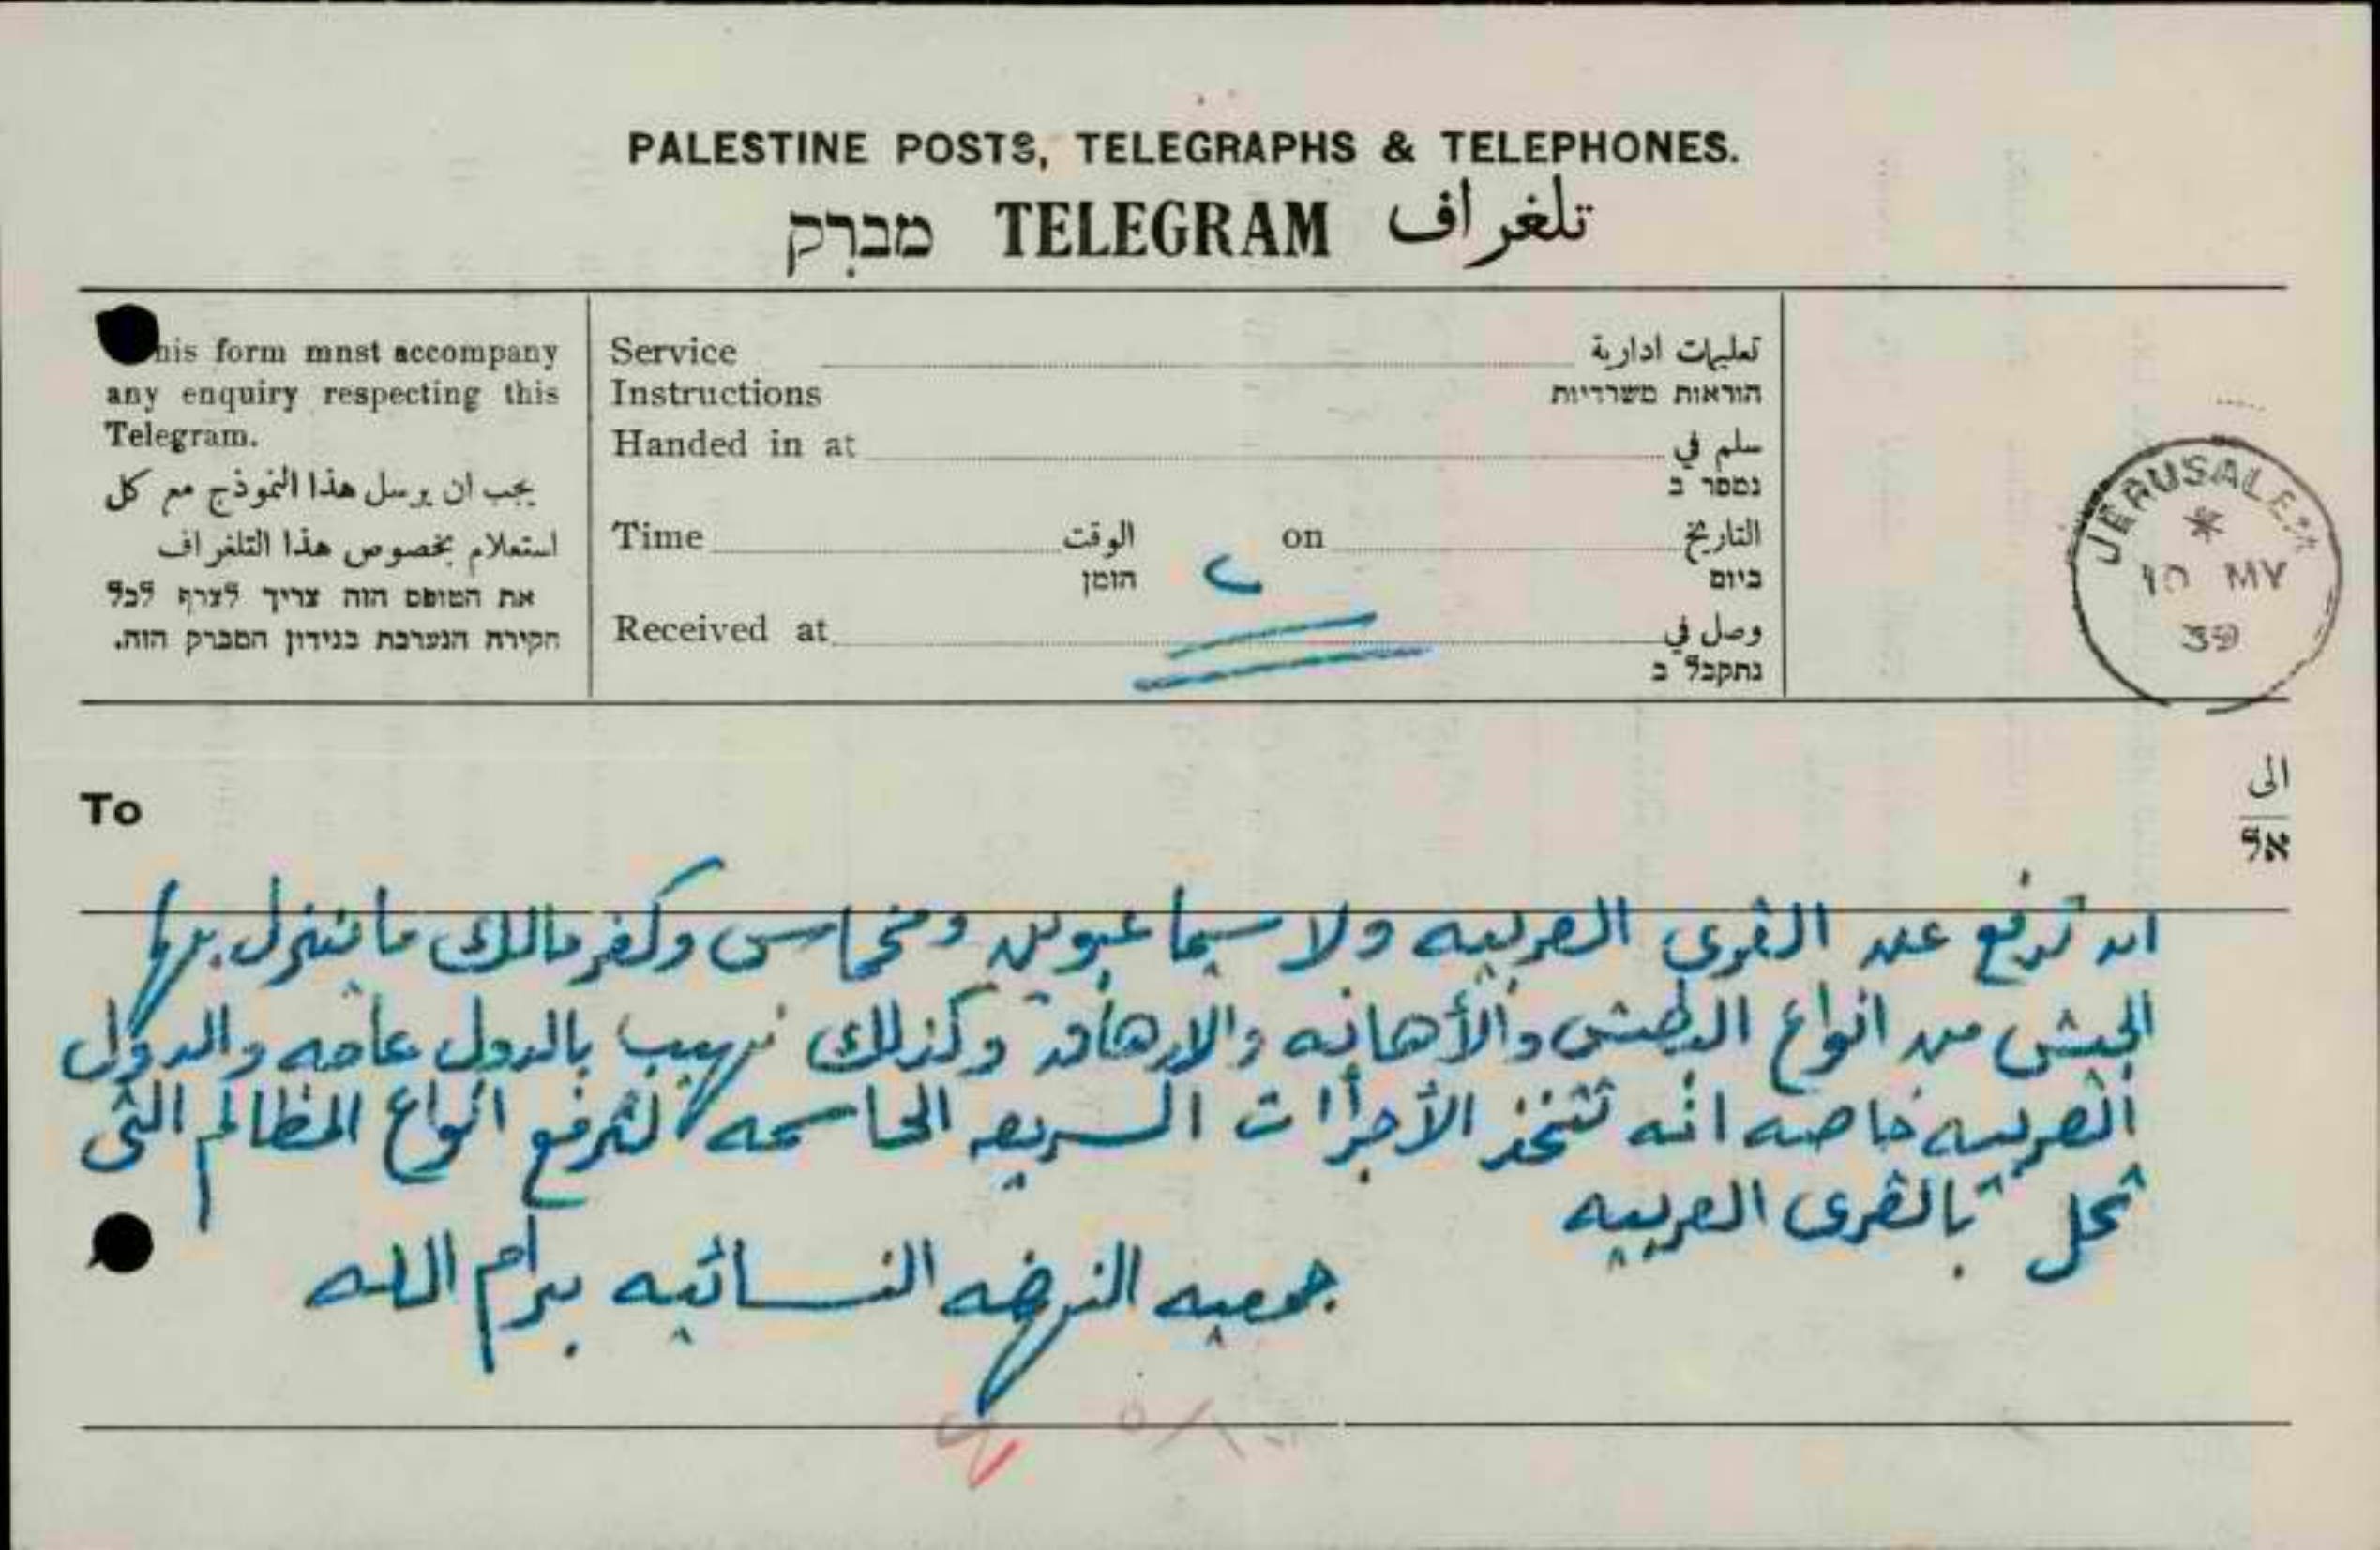 PALESTINE POSTS, TELEGRAPHS & TELEPHONES.
מברק TELEGRAM تلغراف
his form mnst accompany
any enquiry respecting this
Telegram.
يجب ان يرسل هذا النموذج مع كل
استعلام بخصوص هذا التلغراف
את הטופס הזה צריך לצרף לכל
חקירת הנערכת בנידון המברק הזה.
Service تعليمات ادارية
Instructions הוראות משרדיות
Handed in at سلم في
נמסר ב
Time الوقت on التاريخ
הזמן ביום
Received at وصل في
נתקבל ב
JERUSALEM
10 MY
39
To الى
אל
ان ترفع عن القرى العربيه ولا سيما عبوين ومخماس وكفر مالك ما تنزل بها
الجيش من انواع البطش والأهانه والارهاق وكذلك نهيب بالدول عامه والدول
العربيه خاصه انه تتخذ الأجراات السريعه الحاسمه لترفع انواع المظالم التي
تحل بالقرى العربيه
جمعيه النهضه النسائيه برام الله